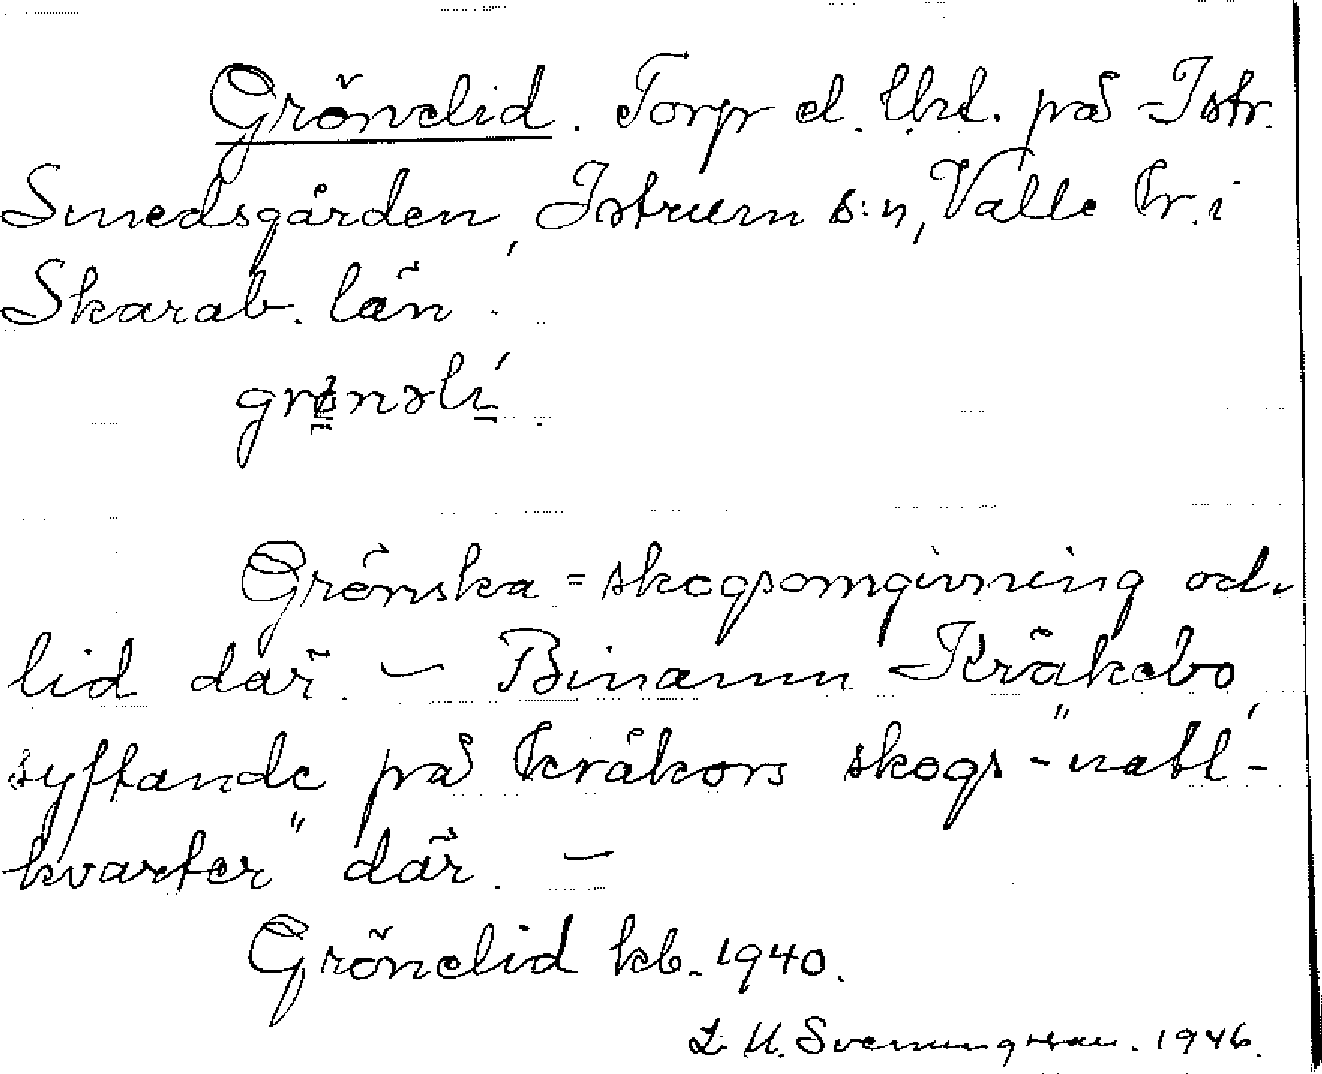 Grönelid. Torp el. lht. på Istr.
Smedsgården, Istrum s:n, Valle hr. i
Skarab. län.
grønəlí.
Grönska = skogsomgivning och
lid där. — Binamn Kråkebo,
syftande på kråkors skogs-"natt-
kvarter" där. —
Grönelid kb. 1940.
L. U. Svenungsson. 1946.